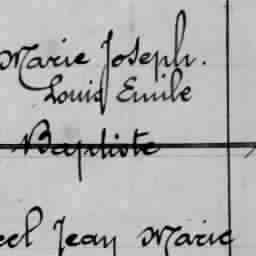 Marie Joseph.
Louis Emile
Baptiste
Jean Marie